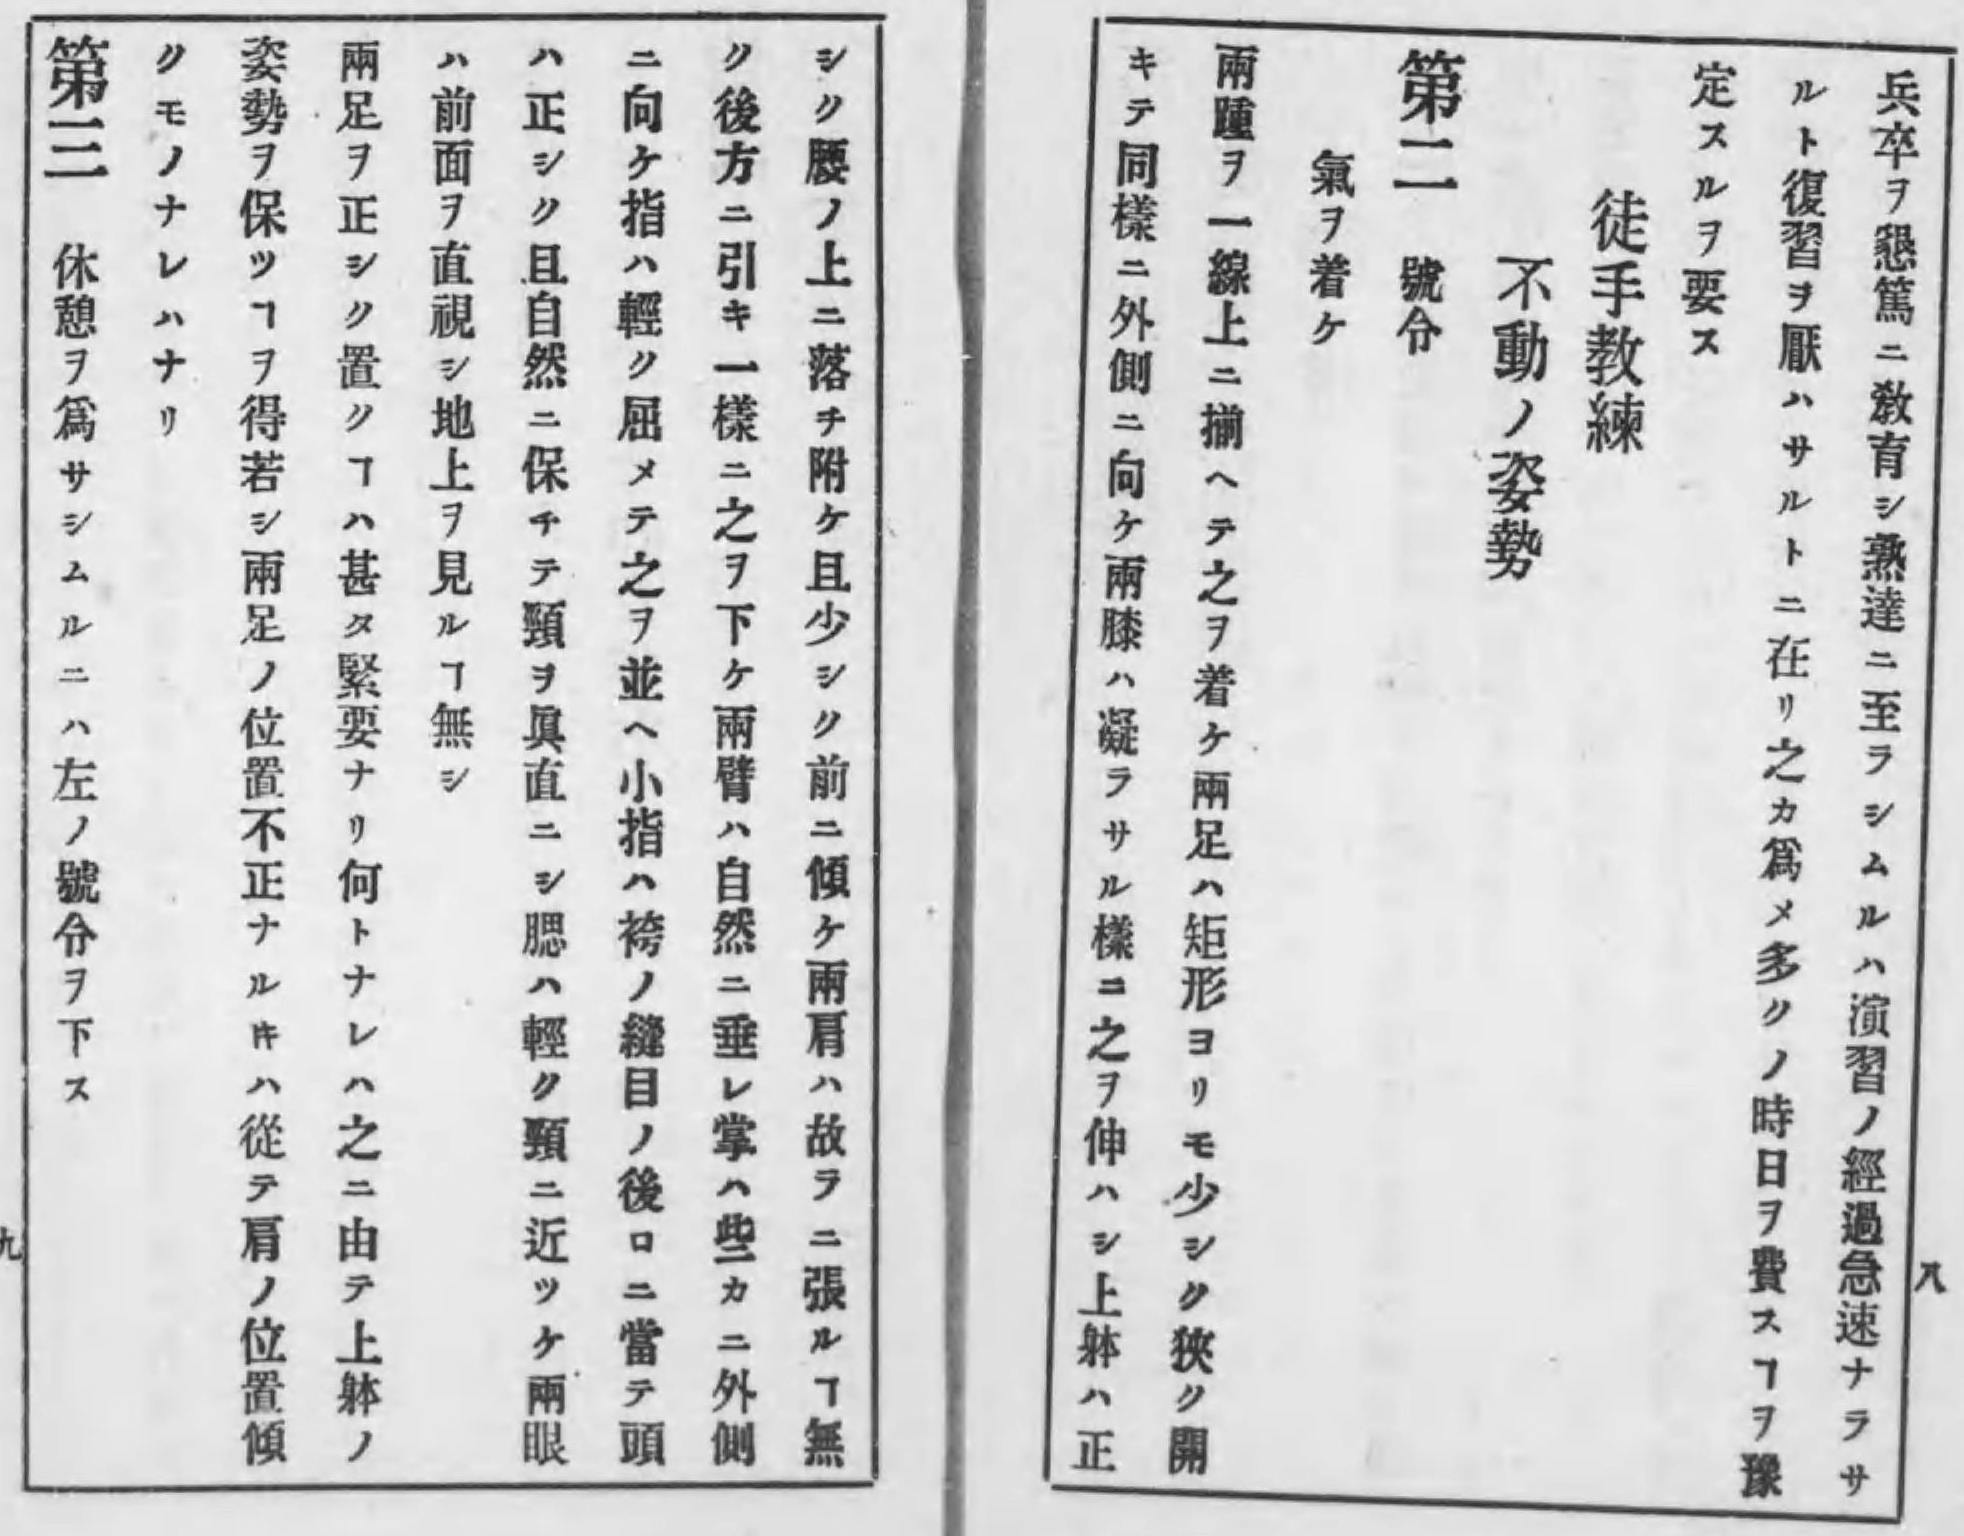 八
兵卒ヲ懇篤ニ敎育シ熟達ニ至ラシムルハ演習ノ經過急速ナラサ
ルト復習ヲ厭ハサルトニ在リ之カ爲メ多クノ時日ヲ費スヿヲ豫
定スルヲ要ス
徒手教練
不動ノ姿勢
第二　號令
氣ヲ着ケ
兩踵ヲ一線上ニ揃ヘテ之ヲ着ケ兩足ハ矩形ヨリモ少シク狹ク開
キテ同樣ニ外側ニ向ケ兩膝ハ凝ラサル樣ニ之ヲ伸ハシ上躰ハ正
シク腰ノ上ニ落チ附ケ且少シク前ニ傾ケ兩肩ハ故ラニ張ルヿ無
ク後方ニ引キ一樣ニ之ヲ下ケ兩臂ハ自然ニ垂レ掌ハ些カニ外側
ニ向ケ指ハ輕ク屈メテ之ヲ並ヘ小指ハ袴ノ縫目ノ後ロニ當テ頭
ハ正シク且自然ニ保チテ頸ヲ眞直ニシ腮ハ輕ク頸ニ近ツケ兩眼
ハ前面ヲ直視シ地上ヲ見ルヿ無シ
兩足ヲ正シク置クヿハ甚タ緊要ナリ何トナレハ之ニ由テ上躰ノ
姿勢ヲ保ツヿヲ得若シ兩足ノ位置不正ナルヰハ從テ肩ノ位置傾
クモノナレハナリ
第三　休憩ヲ爲サシムルニハ左ノ號令ヲ下ス
九